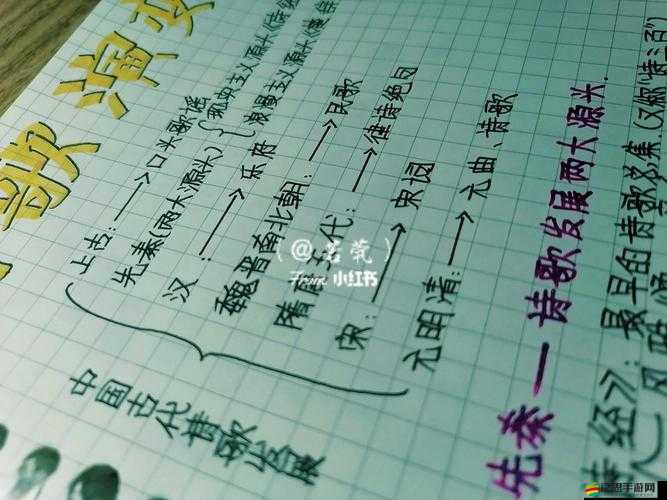 歌演变
中国古代诗歌发展
上古:→口头歌谣
先秦(两大源头){现实主义源头《诗经
浪漫主义源头《楚辞
汉:→乐府
魏晋南北朝:→民歌
隋唐五代:→律诗绝句
宋:→宋词
元明清:→元曲、诗歌
先秦—诗歌发展两大源头.
诗经》:最早的诗歌总集(又称"诗三百"
(@若茕)
From 小红书